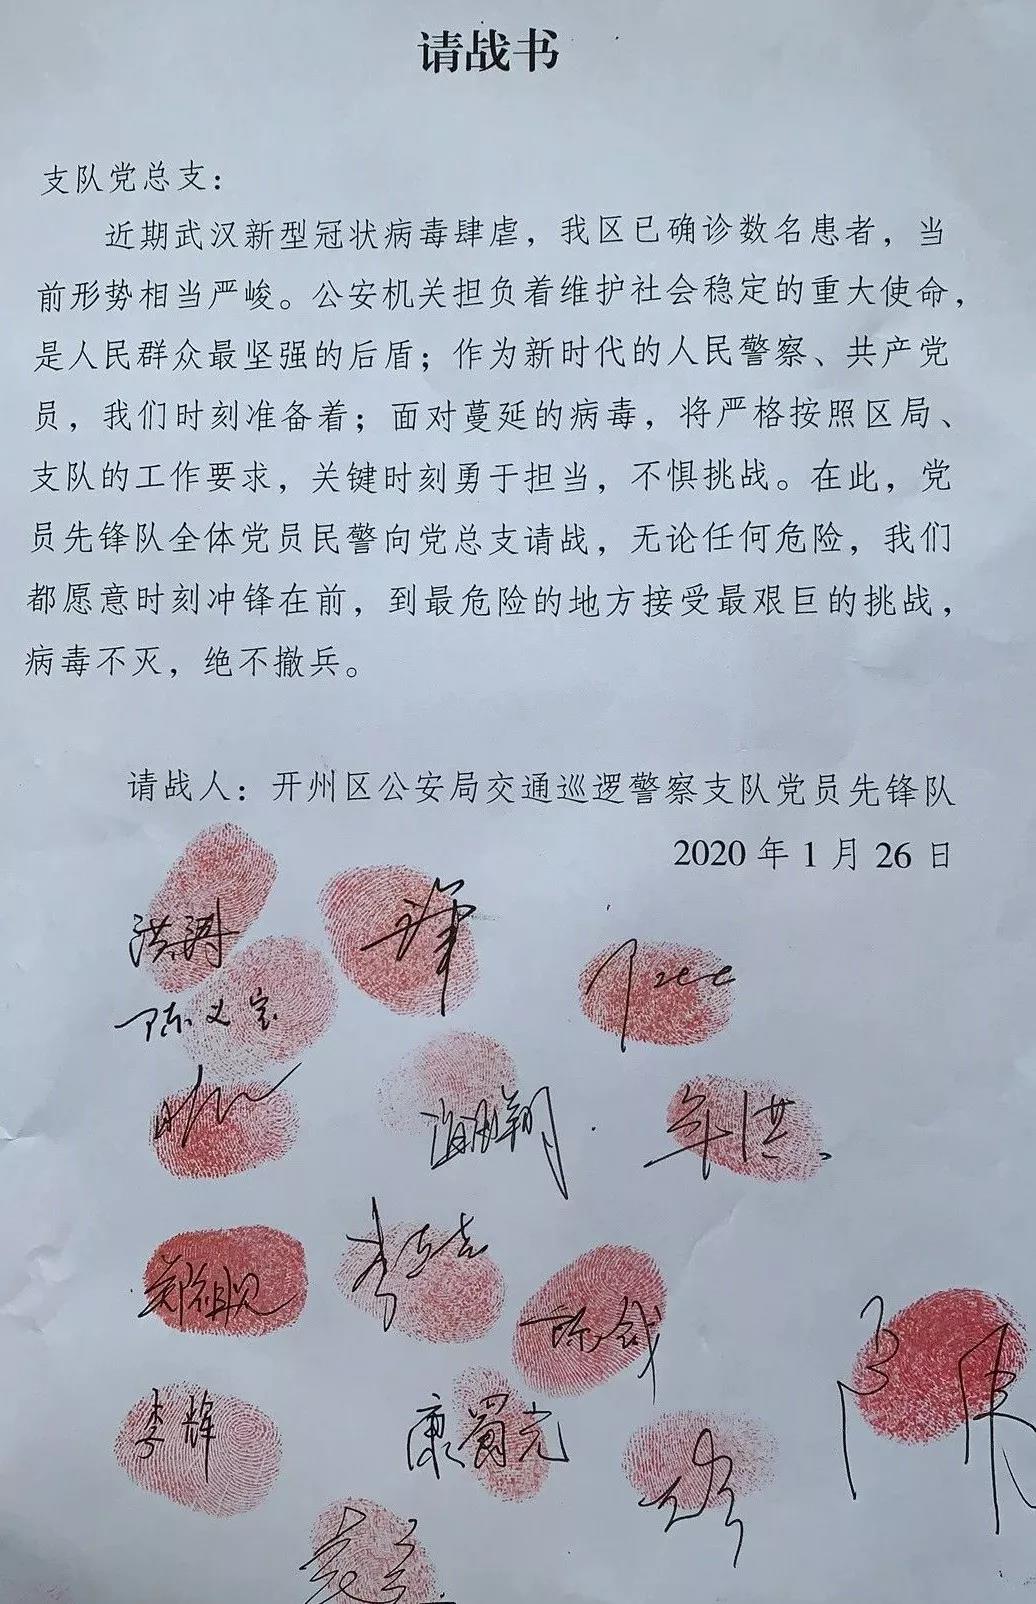 请战书
支队党总支：
近期武汉新型冠状病毒肆虐，我区已确诊数名患者，当
前形势相当严峻。公安机关担负着维护社会稳定的重大使命，
是人民群众最坚强的后盾；作为新时代的人民警察、共产党
员，我们时刻准备着；面对蔓延的病毒，将严格按照区局、
支队的工作要求，关键时刻勇于担当，不惧挑战。在此，党
员先锋队全体党员民警向党总支请战，无论任何危险，我们
都愿意时刻冲锋在前，到最危险的地方接受最艰巨的挑战，
病毒不灭，绝不撤兵。
请战人：开州区公安局交通巡逻警察支队党员先锋队
2020 年 1 月 26 日
洪涛
陈义宝
李辉 康蜀光